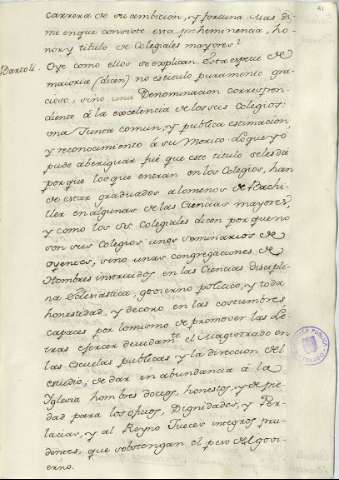 carrera de su ambicion, y fortuna. Mas di
me en que consiste esta prehemi­nencia, ho
nor y titulo de Colegiales mayores?
Bartoli. Oye como ellos se explican. Esta especie de
maioria (dicen) no es titulo puramente gra
cioso, sino una Denominacion correspon
diente á la excelencia de los seis Colegios:
una Junta comun, y publica estimacion
y reconocimiento á su Merito. Lo que yo
pude aberiguar fué que este titulo se les dá
por que los que entran en los Colegios, han
de estar graduados alomenos de Bachi
ller en alguna de las Ciencias mayores,
y como los seis Colegiales dicen por que no
son seis Colegios unos Seminarios de
oyentes, sino unas congregaciones de
Hombres instruidos en las Ciencias discipli
na Eclesiastica, govierno politico, y toda
honestidad, y decoro en las costumbres
capaces por lo mismo de promover las Le
tras exercer devidamte el Magistrado en
las Escuelas publicas y la direccion del
estudio, de dar en abundancia á la
Iglesia hombres doctos, honestos, y de pie
dad para los oficios, Dignidades, y Per
lacias, y al Reyno Jueces integros pru
dentes, que sobstengan el peso del govi
erno.